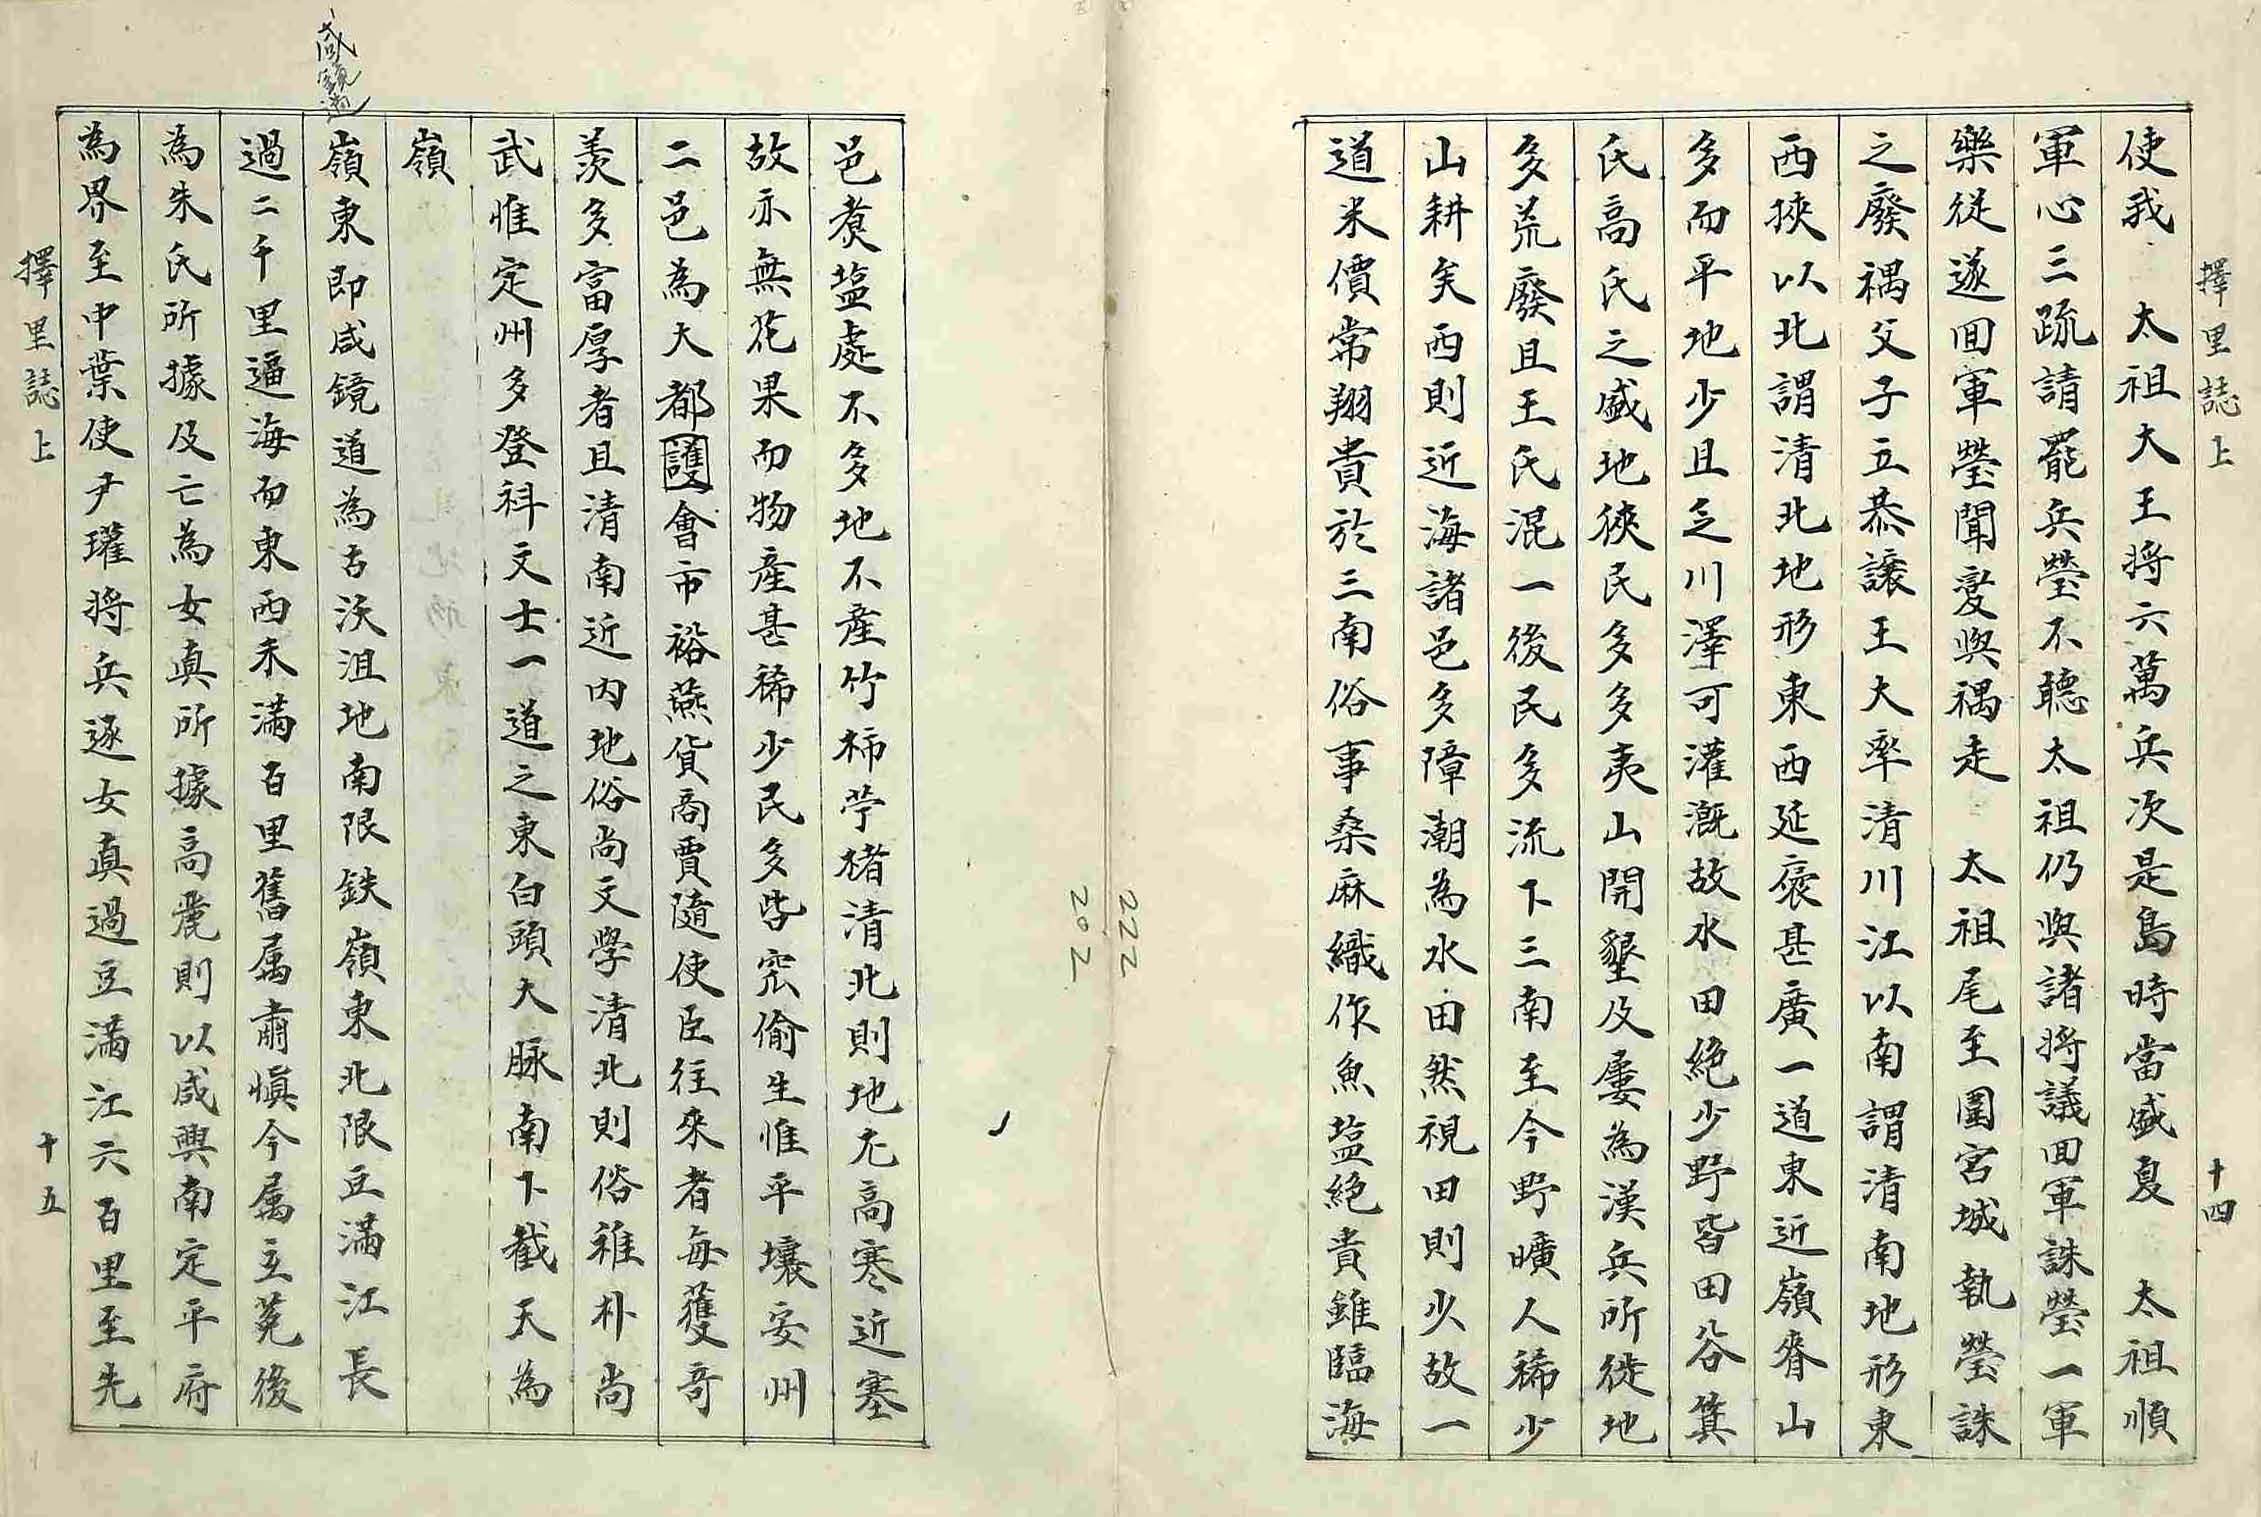 擇里誌上
十四
使我 太祖大王將六萬兵次是島時當盛夏 太祖順
軍心三疏請罷兵瑩不聽太祖仍與諸將議回軍誅瑩一軍
樂從遂回軍瑩聞變與禑走 太祖尾至圍宮城執瑩誅
之廢禑父子立恭讓王大率清川江以南謂清南地形東
西挾以北謂清北地形東西延袤甚廣一道東近嶺脊山
多而平地少且乏川澤可灌漑故水田絶少野皆田谷箕
氏高氏之盛地狹民多多夷山開墾及屢為漢兵所徙地
多荒廢且王氏混一後民多流下三南至今野曠人稀少
山耕矣西則近海諸邑多障潮為水田然視田則少故一
道米價常翔貴於三南俗事桑麻織作魚塩絶貴雖臨海
222
202
邑煑塩處不多地不産竹柿苧楮清北則地尤高寒近塞
故亦無花果而物産甚稀少民多呰窳偷生惟平壤安州
二邑為大都護會市裕燕貨商賈隨使臣往來者每獲奇
羨多富厚者且清南近内地俗尚文學清北則俗稚朴尚
武惟定州多登科文士一道之東白頭大脉南下截天為
嶺
咸鏡道
嶺東即咸鏡道為古沃沮地南限鉄嶺東北限豆滿江長
過二千里逼海而東西未滿百里舊属肅愼今属玄菟後
為朱氏所據及亡為女眞所據高麗則以咸興南定平府
為界至中葉使尹瓘將兵逐女眞過豆滿江六百里至先
擇里誌上
十五